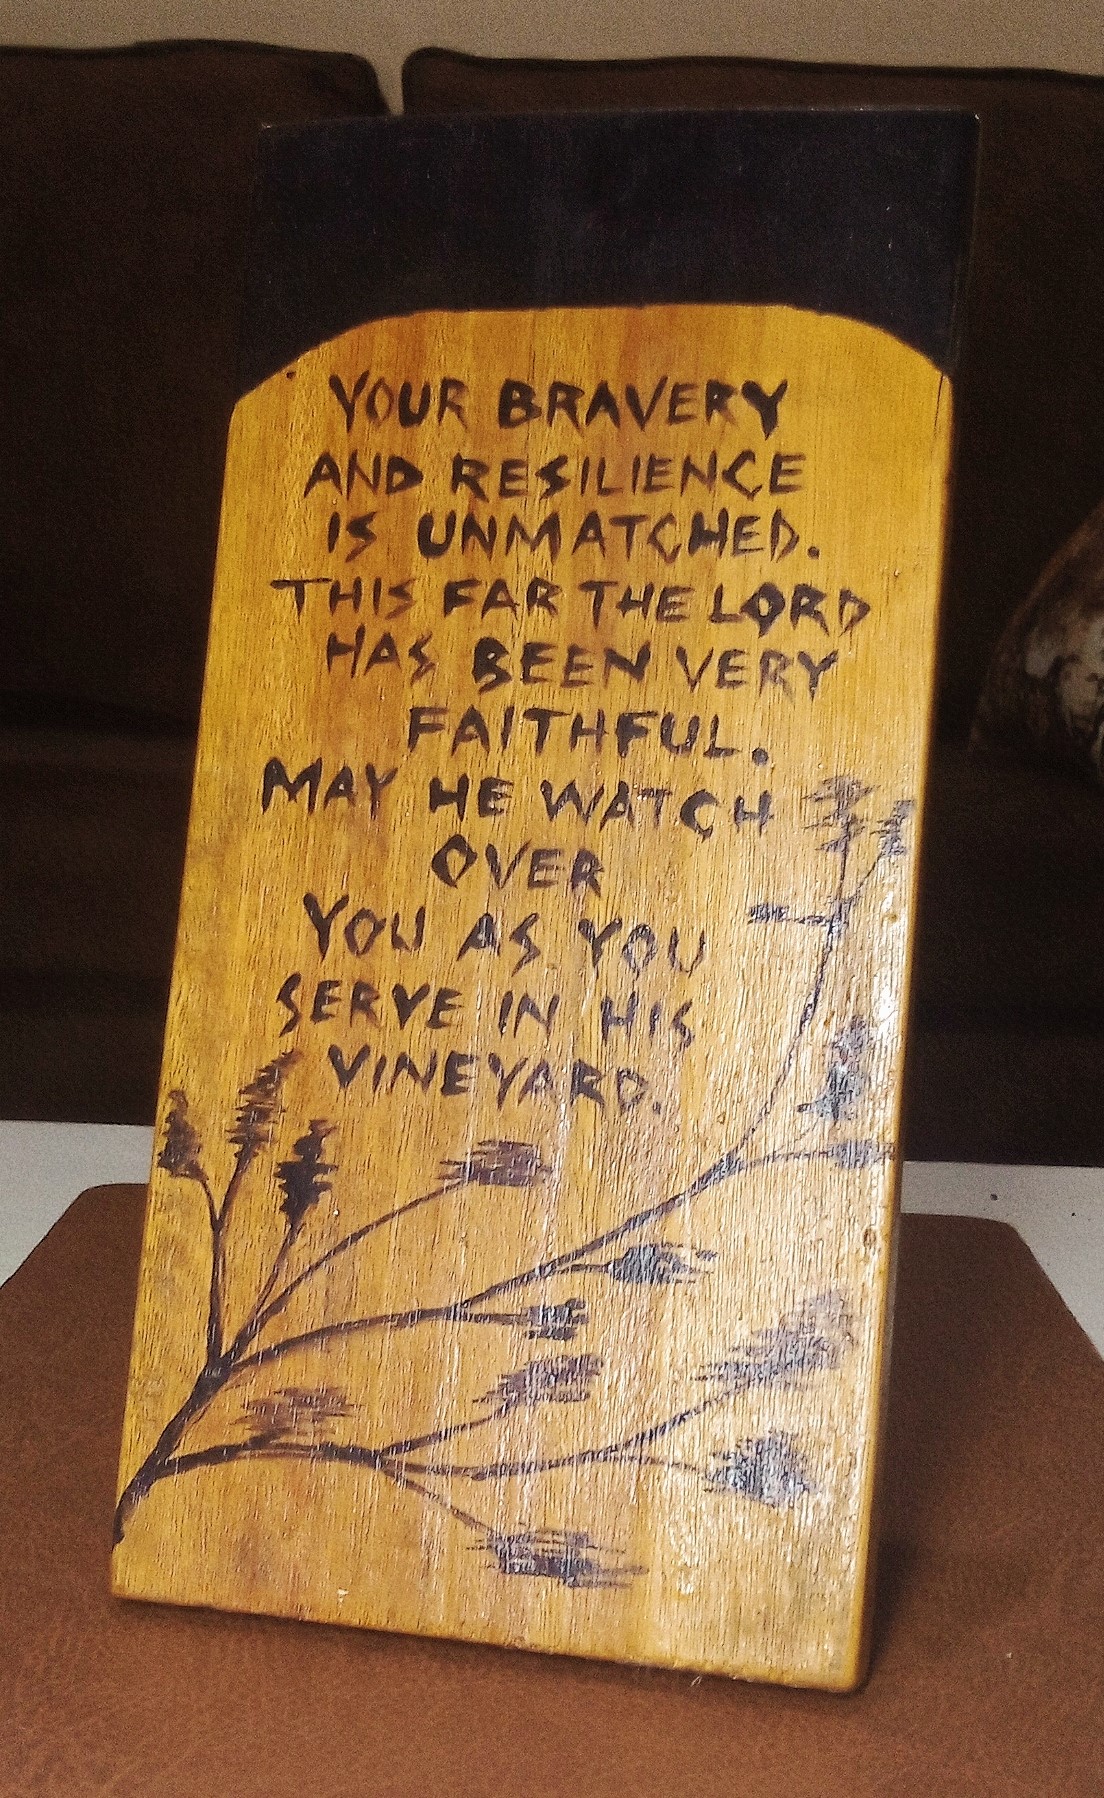 YOUR BRAVERY
AND RESILIENCE
IS UNMATCHED.
THIS FAR THE LORD
HAS BEEN VERY
FAITHFUL.
MAY HE WATCH
OVER
YOU AS YOU
SERVE IN HIS
VINEYARD.